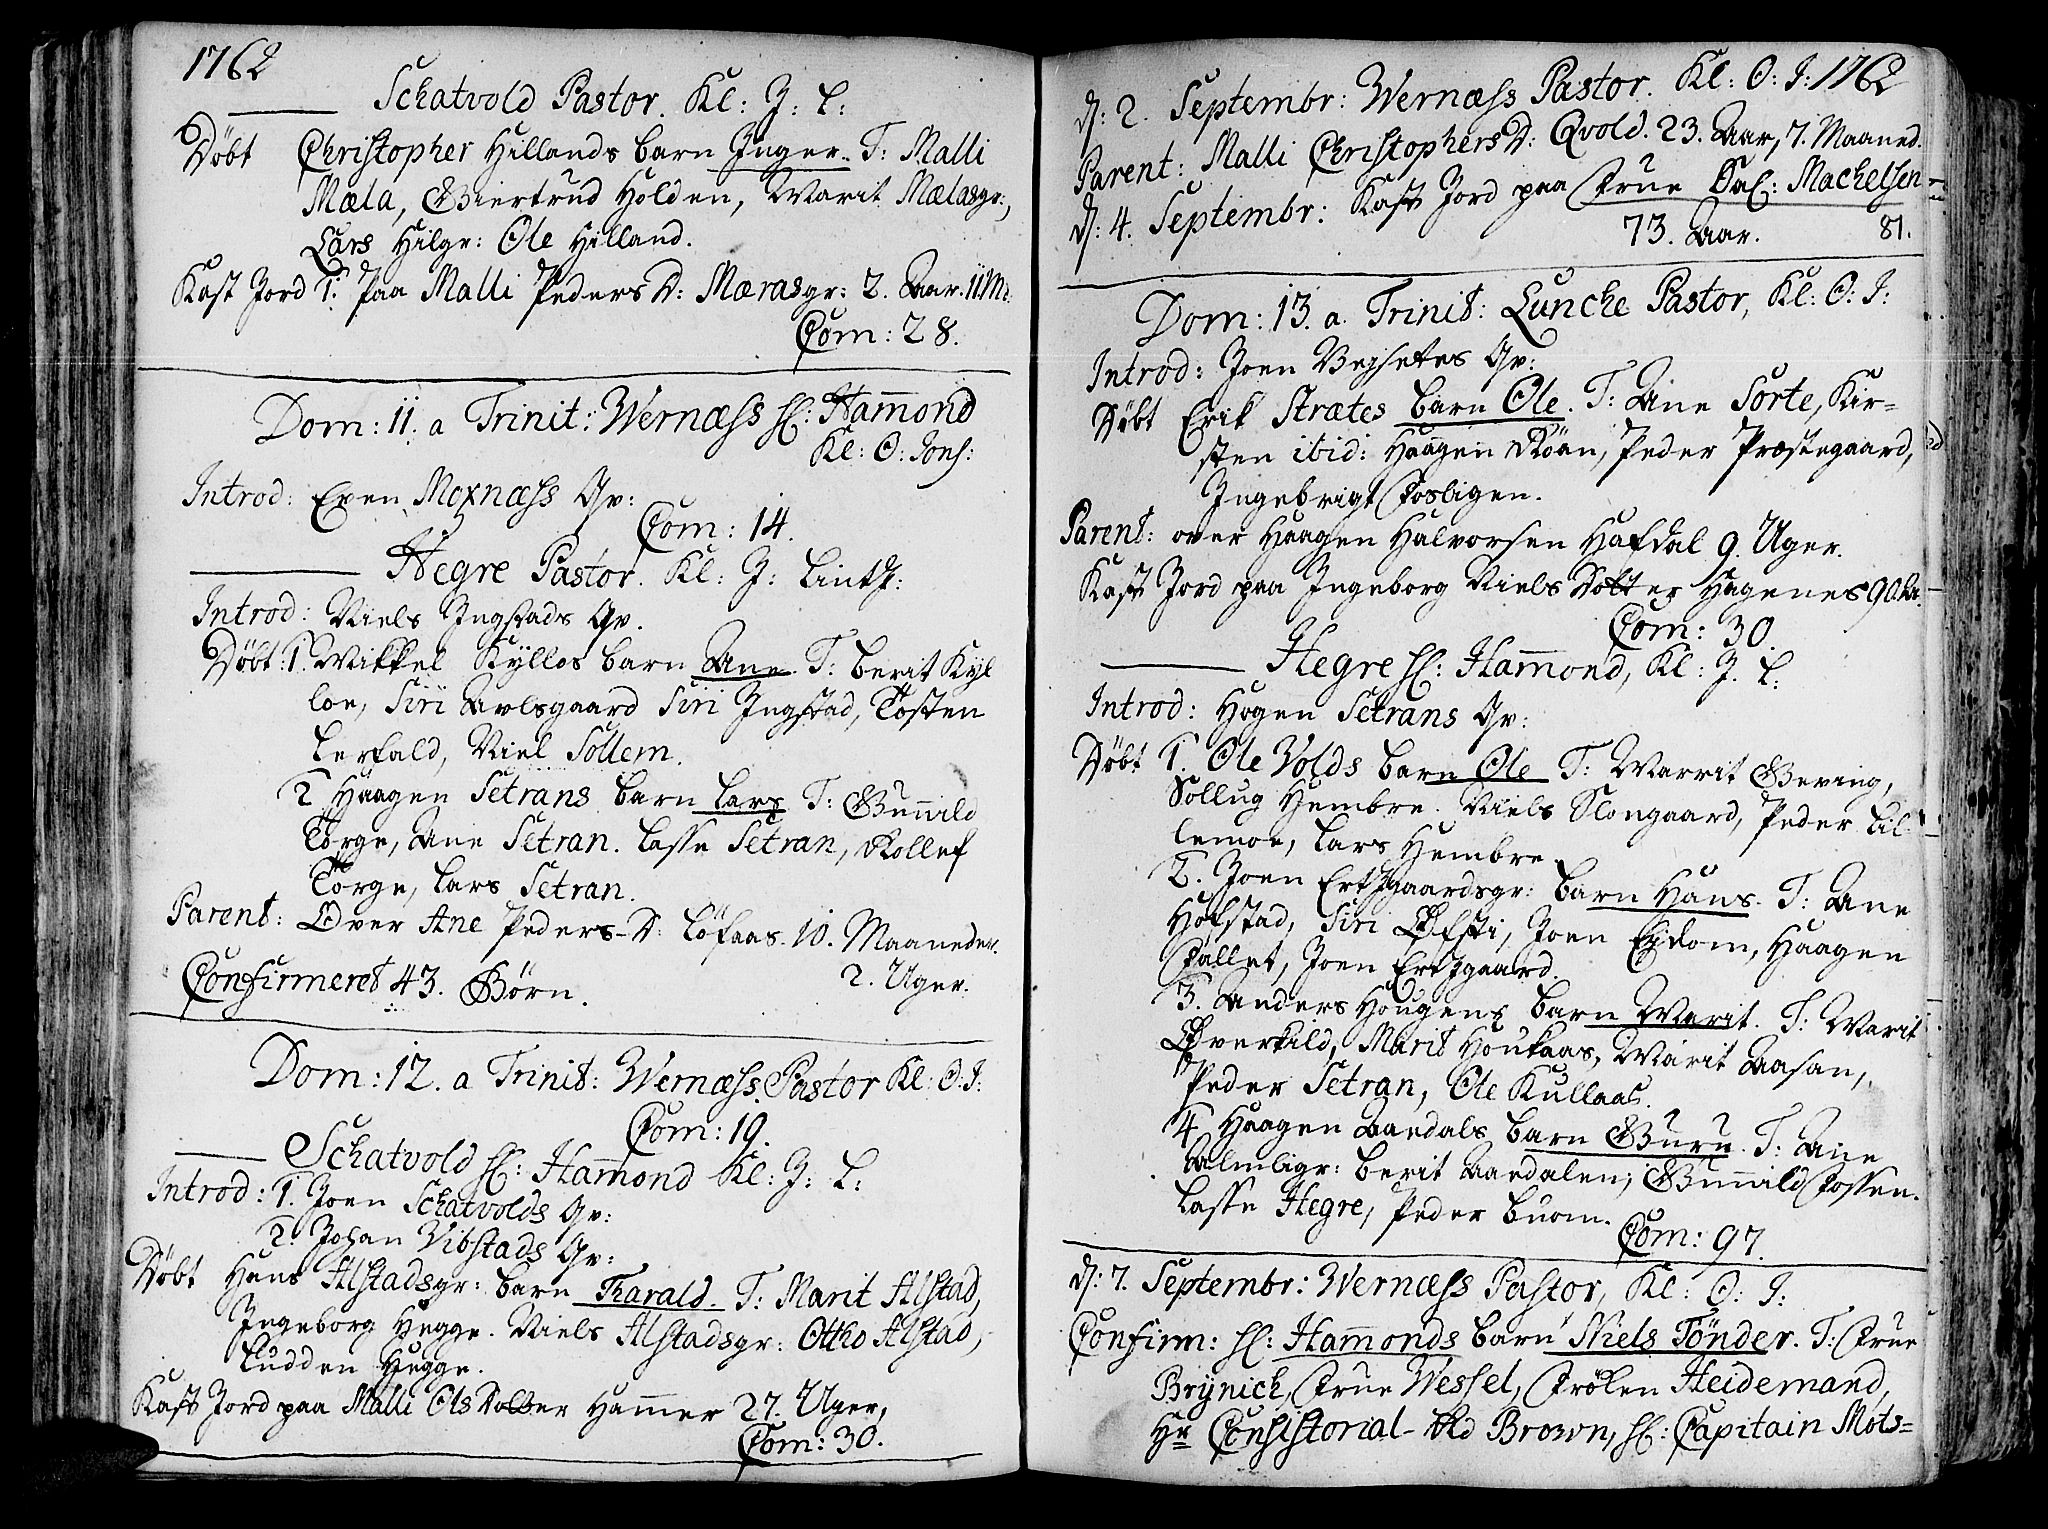 1762
Schatvold Pastor. Kl: J: L:
Döbt Christopher Hillands barn Inger. T: Malli
Mæla, Giertrud Holden, Marit Mælasgr:,
Lars Hilgr: Ole Hilland.
Kast Jord 1. paa Malli Peders D: Mærasgr: 2. Aar. 11 Md.
Com: 28.
Dom: 11. a Trinit: Wernæss H: Ham̅ond
Kl: O: Jons:
Introd: Even Moxnæss Qv:
Com: 14.
Hegre Pastor. Kl: J: Lintz:
Introd: Niels Ingstads Qv.
Döbt: 1. Mikkel Kylloes barn Ane. T: Berit Kyl
loe, Siri Avlsgaard Siri Ingstad, Tosten
Lerfald, Niel Sollem.
2 Haagen Setrans barn Lars T: Gun̅ild
Torge, Ane Setran. Lasse Setran, Rollef
Torge, Lars Setran.
Parent: Over Ane Peders-D: Löfaas. 10. Maaneder.
2. Uger.
Confirmeret 43. Börn.
Dom: 12. a Trinit: Wernæss. Pastor Kl: O: J:
Com: 19.
Schatvold H: Ham̅ond Kl: J: L:
Introd: 1. Joen Schatvolds Qv:
2. Johan Vibstads Qv:
Döbt Hans Alstadsgr: barn Harald. T: Marit Alstad,
Ingeborg Hegge. Niels Alstadsgr: Ottho Alstad,
Ludden Hegge.
Kast Jord paa Malli Ols Dotter Ham̅er 27. Uger,
Com: 30.
d: 2. Septembr: Wernæss Pastor. Kl: O: J: 1762
Parent: Malli Christophers D: Qvold. 23. Aar, 7. Maaned.
d: 4. Septembr: Kast Jord paa Frue Sal: Machelsen
73. Aar. 81.
Dom: 13. a. Trinit: Lunche Pastor, Kl: O: J:
Introd: Joen Vejsetes Qv:
Döbt Erik Strætes barn Ole. T: Ane Sorte, Kir=
sten ibid: Haagen Röan, Peder Præstegaard,
Ingebrigt Fosligen.
Parent: over Haagen Halvorsen Hafdal 9. Uger.
Kast Jord paa Ingeborg Niels Dotter Hagenes 90 A.
Com: 30.
Hegre H: Ham̅ond, Kl: J. L:
Introd: Hogen Setrans Qv:
Döbt 1. Ole Volds barn Ole T: Marrit Geving,
Sollug Hembre. Niels Slongaard, Peder Lil=
lemoe, Lars Hembre.
2. Joen Ertzgaardsgr: barn Hans. T: Ane
Hofstad, Siri Öfsti, Joen Ejdom, Haagen
Fjallet, Joen Ertzgaard.
3. Anders Hougens barn Marit. T: Marit
Överkild, Marit Houkaas, Marit Aasan,
Peder Setran, Ole Kullaas.
4. Haagen Aaedals barn Guru. T: Ane
Almligr: Berit Aaedalen; Gun̅ild Fossen.
Lasse Hegre, Peder Buom.
Com: 97.
d: 7. Septembr: Wernæss Pastor, Kl: O: J:
Confirm: H: Ham̅onds barn Niels Tönder. T: Frue
Brÿnich, Frue Wessel, Frölen Heidemand,
Hr Consistorial-Rd Brown, H: Capitain Mots=